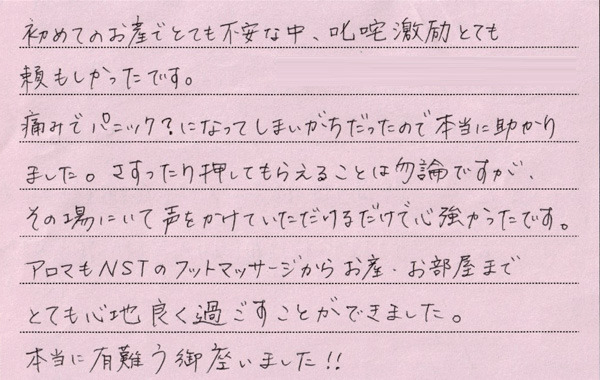 初めてのお産でとても不安な中、叱咤激励とても
頼もしかったです。
痛みでパニック?になってしまいがちだったので本当に助かり
ました。さすったり押してもらえることは勿論ですが、
その場にいて声をかけていただけるだけで心強かったです。
アロマもNSTのフットマッサージからお産・お部屋まで
とても心地良く過ごすことができました。
本当に有難う御座いました!!